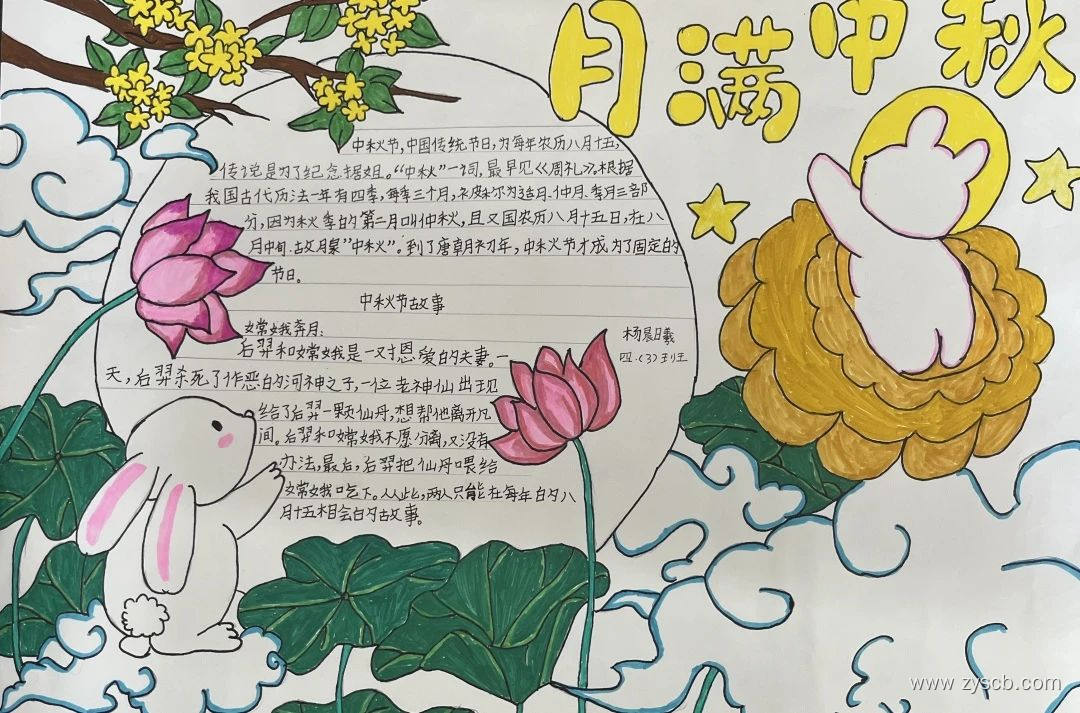 月满中秋
中秋节,中国传统节日,为每年农历八月十五,
传说是为了纪念据姐。“中秋”一词,最早见《周礼》。根据
我国古代历法一年有四季,每季三个月,月.仲月.季月三部
分,因为秋季的第二月叫仲秋,且又国农历八月十五日,在八
月中旬.古“中秋”。到了唐朝初年,中秋节才成为了固定的
节日。
中秋节故事
嫦娥奔月:
后羿和嫦娥是一对恩爱的夫妻。一
天,后羿杀死了作恶的河神之子,一位老神仙出现
给了后羿一颗仙丹,想帮他离开凡
间。后羿和嫦娥不愿分离,又没有
办法,最后,后羿把仙丹喂给
嫦娥吃下。从此,两人只能在每年的八
月十五相会的故事。
杨晨曦
四.(3)班
www.zyscb.com